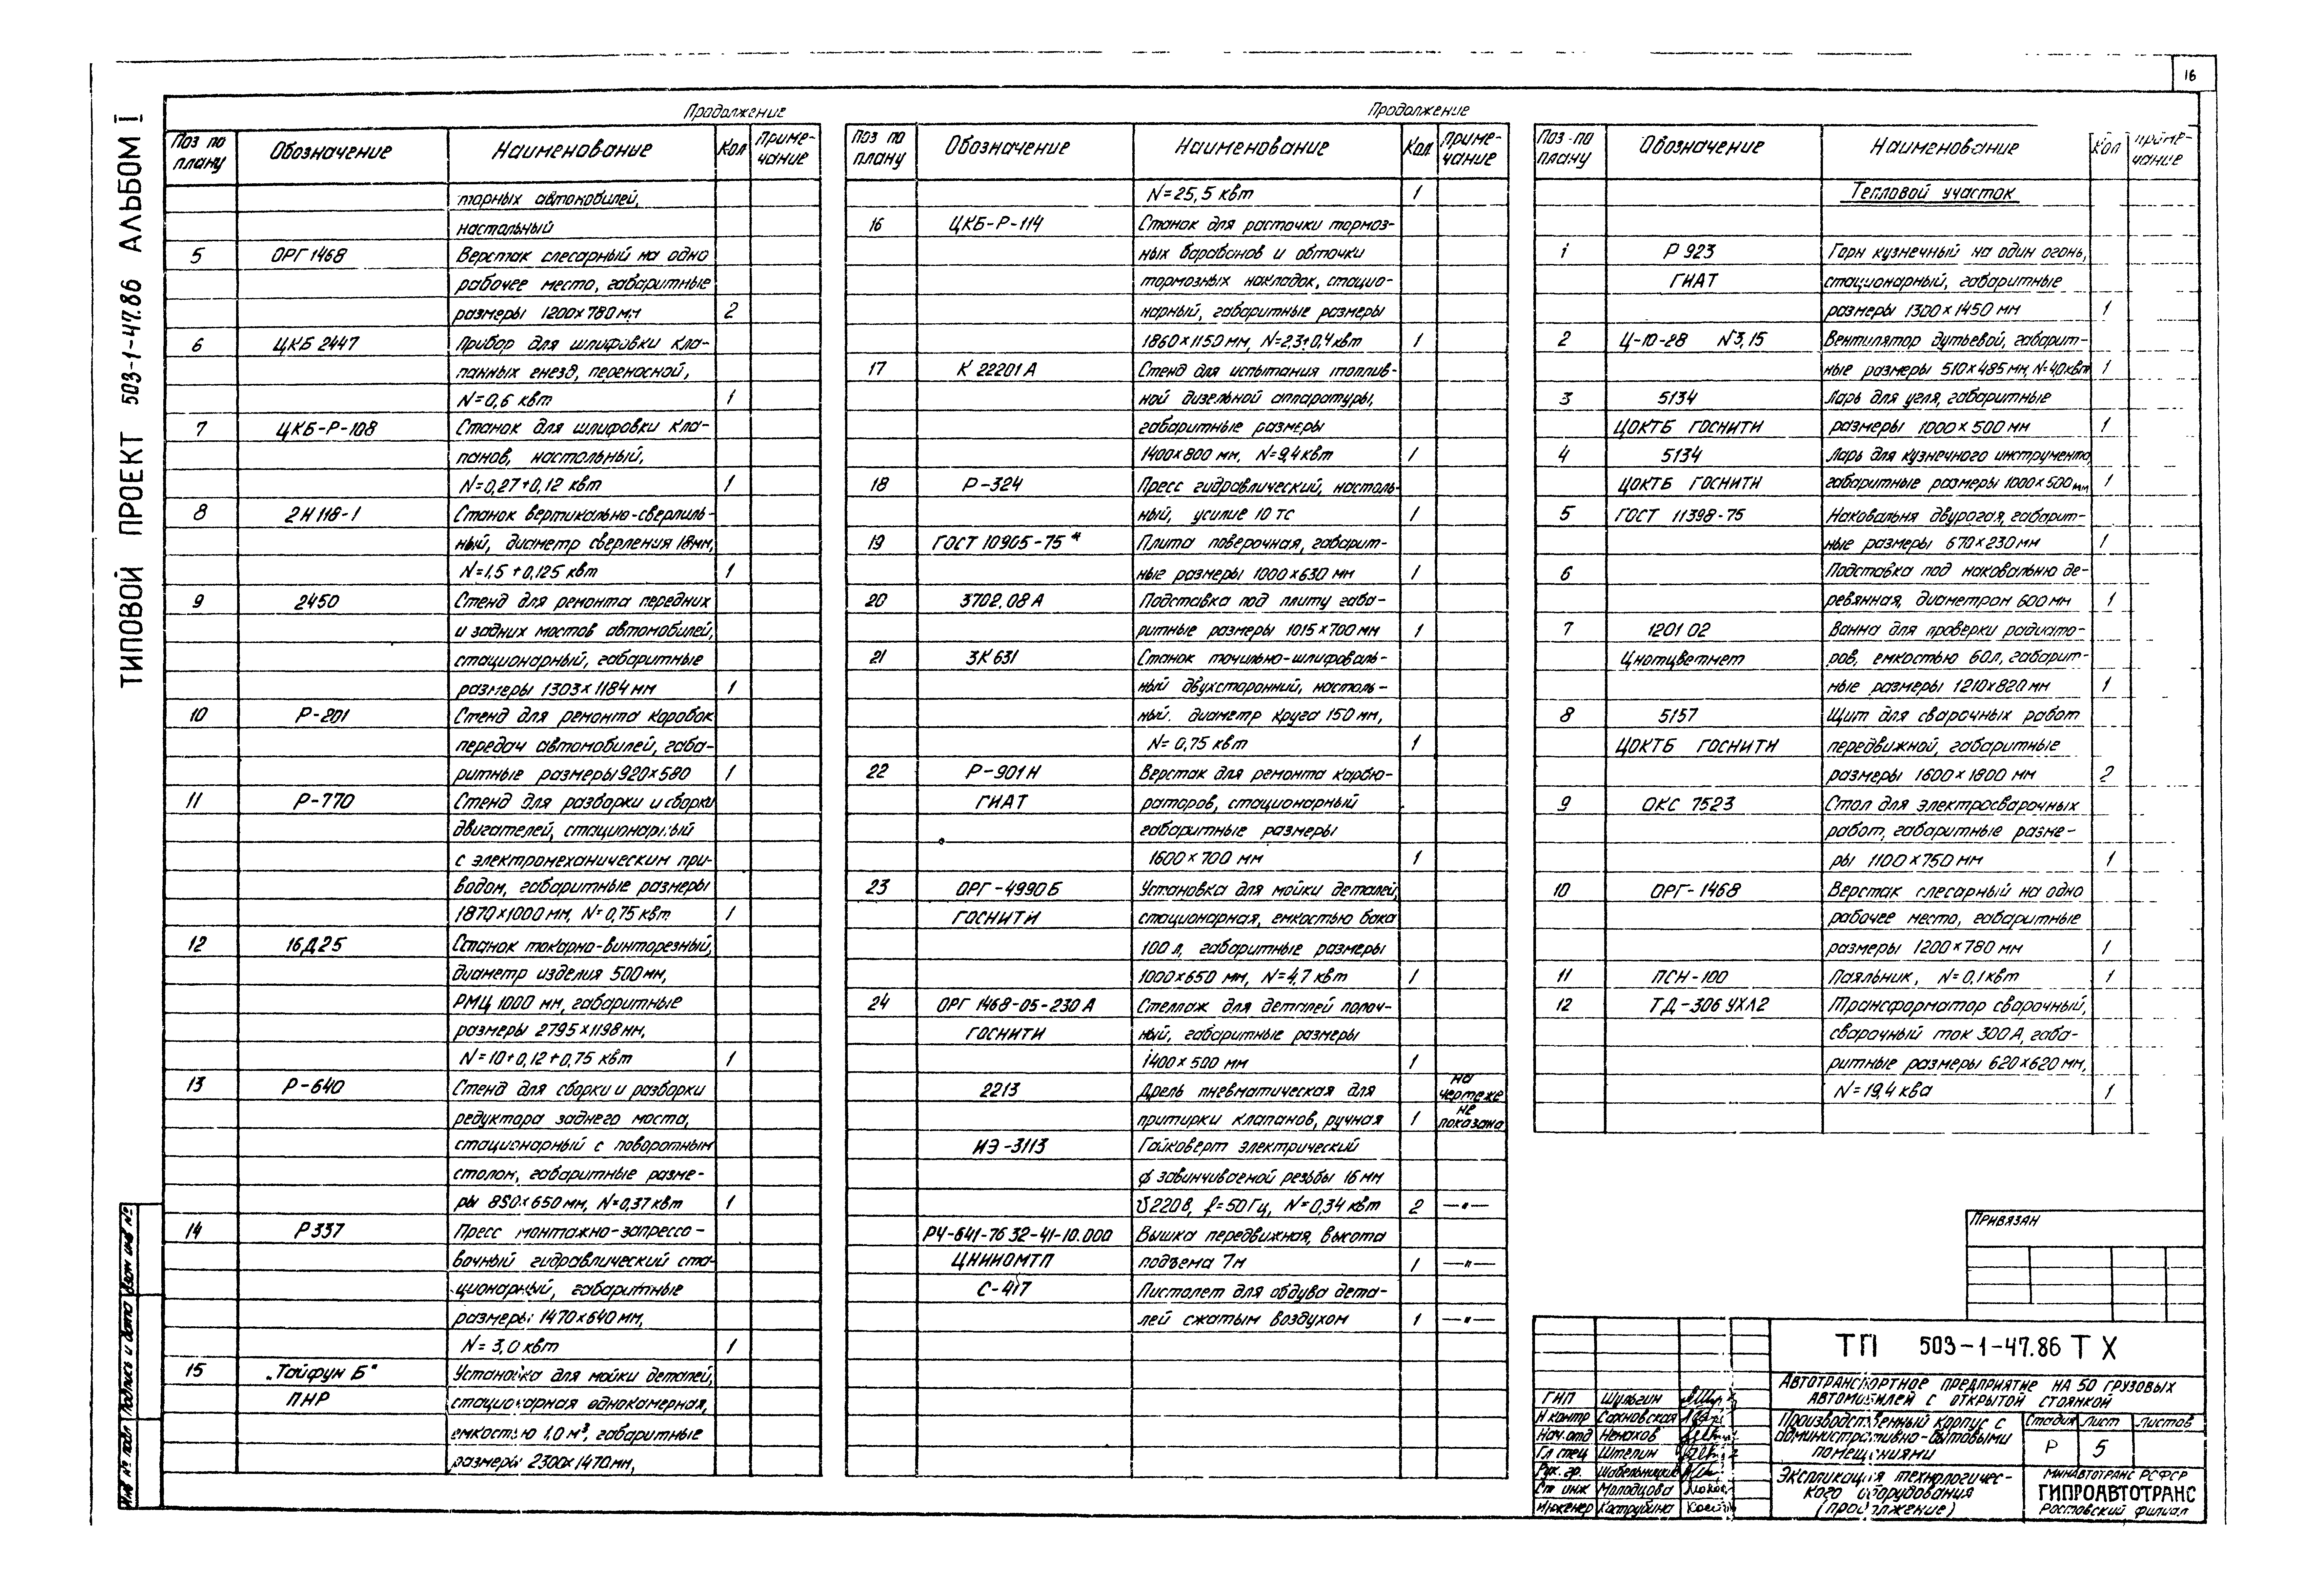 16
ТИПОВОЙ ПРОЕКТ 503-1-47.86 АЛЬБОМ I
Продолжение
Поз по плану Обозначение Наименование Кол Примечание
торных автомобилей,
настольный
5 ОРГ 1468 Верстак слесарный на одно
рабочее место, габаритные
размеры 1200х780 мм 2
6 ЦКБ 2447 Прибор для шлифовки кла-
панных гнезд, переносной,
N=0,6 квт 1
7 ЦКБ-Р-108 Станок для шлифовки кла-
панов, настольный,
N=0,27+0,12 квт 1
8 2Н118-1 Станок вертикально-сверлиль-
ный, диаметр сверления 18мм,
N=1,5+0,125 квт 1
9 2450 Стенд для ремонта передних
и задних мостов автомобилей,
стационарный, габаритные
размеры 1303х1184 мм 1
10 Р-201 Стенд для ремонта коробок
передач автомобилей, габа-
ритные размеры 920х580 1
11 Р-770 Стенд для разборки и сборки
двигателей, стационарный
с электромеханическим при-
водом, габаритные размеры
1870х1000 мм, N=0,75 квт 1
12 16Д25 Станок токарно-винторезный,
диаметр изделия 500 мм,
РМЦ 1000 мм, габаритные
размеры 2795х1198 мм,
N=10+0,12+0,75 квт 1
13 Р-640 Стенд для сборки и разборки
редуктора заднего моста,
стационарный с поворотным
столом, габаритные разме-
ры 850х650 мм, N=0,37 квт 1
14 Р 337 Пресс монтажно-запрессо-
вочный гидравлический ста-
ционарный, габаритные
размеры 1470х640 мм,
N=3,0 квт 1
15 „Тайфун Б" Установка для мойки деталей,
ПНР стационарная однокамерная,
емкостью 1,0 м³, габаритные
размеры 2300х1470 мм,
Продолжение
Поз по плану Обозначение Наименование Кол Примечание
N=25,5 квт 1
16 ЦКБ-Р-114 Станок для расточки тормоз-
ных барабанов и обточки
тормозных накладок, стацио-
нарный, габаритные размеры
1860х1150 мм, N=2,3+0,4 квт 1
17 К 22201 А Стенд для испытания топлив-
ной дизельной аппаратуры,
габаритные размеры
1400х800 мм, N=9,4 квт 1
18 Р-324 Пресс гидравлический, настоль-
ный, усилие 10 тс 1
19 ГОСТ 10905-75* Плита поверочная, габарит-
ные размеры 1000х630 мм 1
20 3702.08 А Подставка под плиту габа-
ритные размеры 1015х700 мм 1
21 3К 631 Станок точильно-шлифоваль-
ный двухсторонний, настоль-
ный. диаметр круга 150 мм,
N=0,75 квт 1
22 Р-901 Н Верстак для ремонта карбю-
ГИАТ раторов, стационарный
габаритные размеры
1600х700 мм 1
23 ОРГ-4990 Б Установка для мойки деталей,
ГОСНИТИ стационарная, емкостью бака
100 л, габаритные размеры
1000х650 мм, N=4,7 квт 1
24 ОРГ 1468-05-230 А Стеллаж для деталей полоч-
ГОСНИТИ ный, габаритные размеры
1400х500 мм 1
2213 Дрель пневматическая для на чертеже
притирки клапанов, ручная 1 не показана
ИЭ-3113 Гайковерт электрический
ϕ завинчиваемой резьбы 16 мм
U 220 в, f=50 Гц, N=0,34 квт 2 —"—
РЧ-641-76 32-41-10.000 Вышка передвижная, высота
ЦНИИОМТП подъема 7м 1 —"—
С-417 Пистолет для обдува дета-
лей сжатым воздухом 1 —"—
Поз по плану Обозначение Наименование Кол Примечание
Тепловой участок
1 Р 923 Горн кузнечный на один огонь,
ГИАТ стационарный, габаритные
размеры 1300х1450 мм 1
2 Ц-10-28 №3,15 Вентилятор дутьевой, габарит-
ные размеры 510х485 мм, N=4,0 квт 1
3 5134 Ларь для угля, габаритные
ЦОКТБ ГОСНИТИ размеры 1000х500 мм 1
4 5134 Ларь для кузнечного инструмента,
ЦОКТБ ГОСНИТИ габаритные размеры 1000х500 мм 1
5 ГОСТ 11398-75 Наковальня двурогая, габарит-
ные размеры 670х230 мм 1
6 Подставка под наковальню де-
ревянная, диаметром 600 мм 1
7 1201 02 Ванна для проверки радиато-
Цнотцветмет ров, емкостью 60л, габарит-
ные размеры 1210х820 мм 1
8 5157 Щит для сварочных работ
ЦОКТБ ГОСНИТИ передвижной, габаритные
размеры 1600х1800 мм 2
9 ОКС 7523 Стол для электросварочных
работ, габаритные разме-
ры 1100х750 мм 1
10 ОРГ-1468 Верстак слесарный на одно
рабочее место, габаритные
размеры 1200х780 мм 1
11 ПСН-100 Паяльник, N=0,1 квт 1
12 ТД-306 УХЛ2 Трансформатор сварочный,
сварочный ток 300 А, габа-
ритные размеры 620х620 мм,
N=19,4 ква 1
Привязан
ТП 503-1-47.86 ТХ
Автотранспортное предприятие на 50 грузовых
автомобилей с открытой стоянкой
ГИП Шульгин
Н контр Сахновская
Нач. отд Ненахов
Гл спец Штепин
Рук. гр. Шабельницкая
Ст инж Молодцова
Инженер Кострубина
Производственный корпус с
административно-бытовыми
помещениями
Стадия Лист Листов
Р 5
Экспликация технологичес-
кого оборудования
(продолжение)
Минавтотранс РСФСР
ГИПРОАВТОТРАНС
Ростовский филиал
Инв № подл Подпись и дата Взам инв №